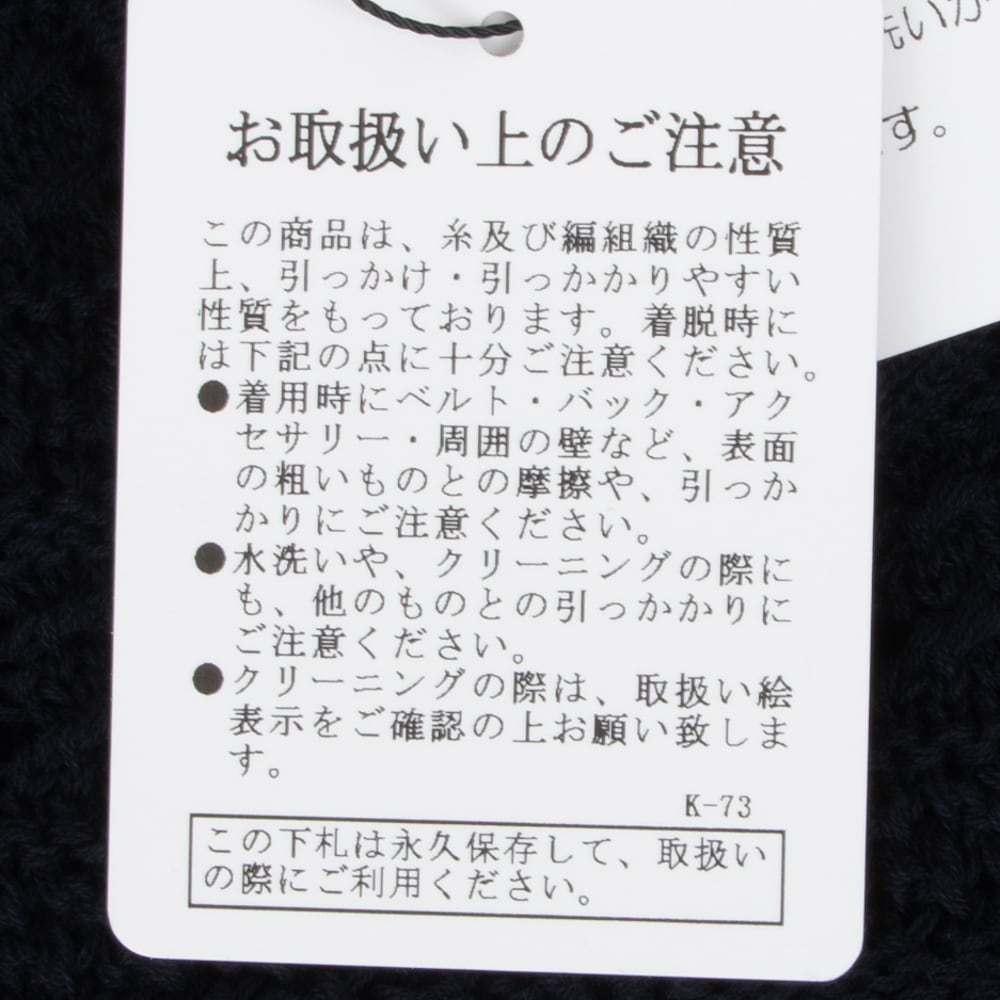 お取扱い上のご注意
この商品は、糸及び編組織の性質
上、引っかけ・引っかかりやすい
性質をもっております。着脱時に
は下記の点に十分ご注意ください。
●着用時にベルト・バック・アク
セサリー・周囲の壁など、表面
の粗いものとの摩擦や、引っか
かりにご注意ください。
●水洗いや、クリーニングの際に
も、他のものとの引っかかりに
ご注意ください。
●クリーニングの際は、取扱い絵
表示をご確認の上お願い致しま
す。
K-73
この下札は永久保存して、取扱い
の際にご利用ください。
洗いが
す。